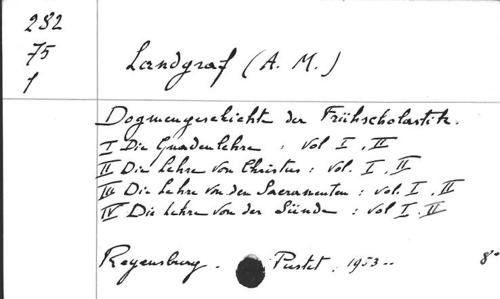 282
75
1
Landgraf (A. M.)
Dogmengeschichte der Frühscholastik.
I Die Gnadenlehre : vol I, II
II Die Lehre von Christus : vol. I, II
III Die Lehre von den Sacramenten : vol. I, II
IV Die Lehre von der Sünde : vol I, II
Regensburg. Pustet, 1953--
8°